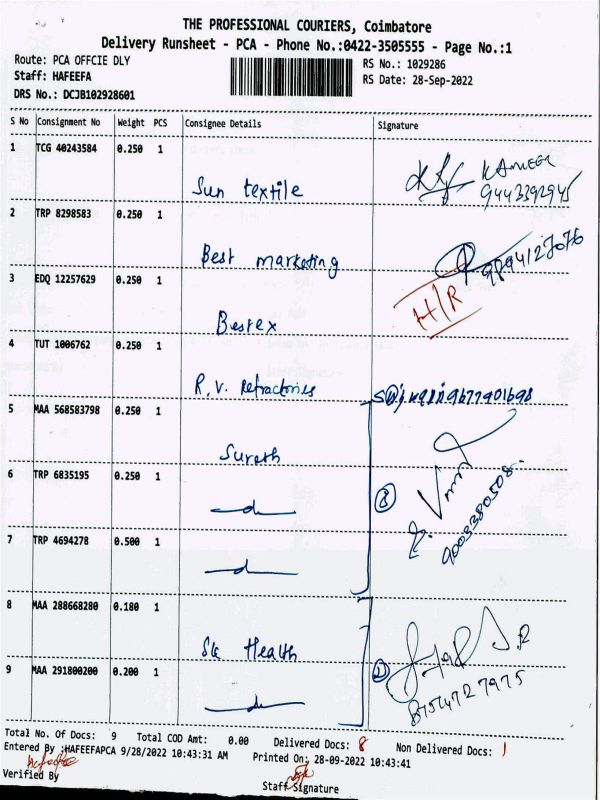 THE PROFESSIONAL COURIERS, Coimbatore
Delivery Runsheet - PCA - Phone No.:0422-3505555 - Page No.:1
Route: PCA OFFCIE DLY RS No.: 1029286
Staff: HAFEEFA RS Date: 28-Sep-2022
DRS No.: DCJB102928601
S No Consignment No Weight PCS Consignee Details Signature
1 TCG 40243584 0.250 1
Sun textile
9443392945
2 TRP 8298583 0.250 1
Best marketing 9894127076
3 EDQ 12257629 0.250 1
H/R
Bestex
4 TUT 1006762 0.250 1
R.V. Refractories 9677901698
5 MAA 568583798 0.250 1
Suresh
6 TRP 6835195 0.250 1
3
9003380508
7 TRP 4694278 0.500 1
8 MAA 288668280 0.180 1
Health
9 MAA 291800200 0.200 1
8754727975
Total No. Of Docs: 9 Total COD Amt: 0.00 Delivered Docs: 8 Non Delivered Docs: 1
Entered By :HAFEEFAPCA 9/28/2022 10:43:31 AM Printed On: 28-09-2022 10:43:41
Verified By Staff Signature